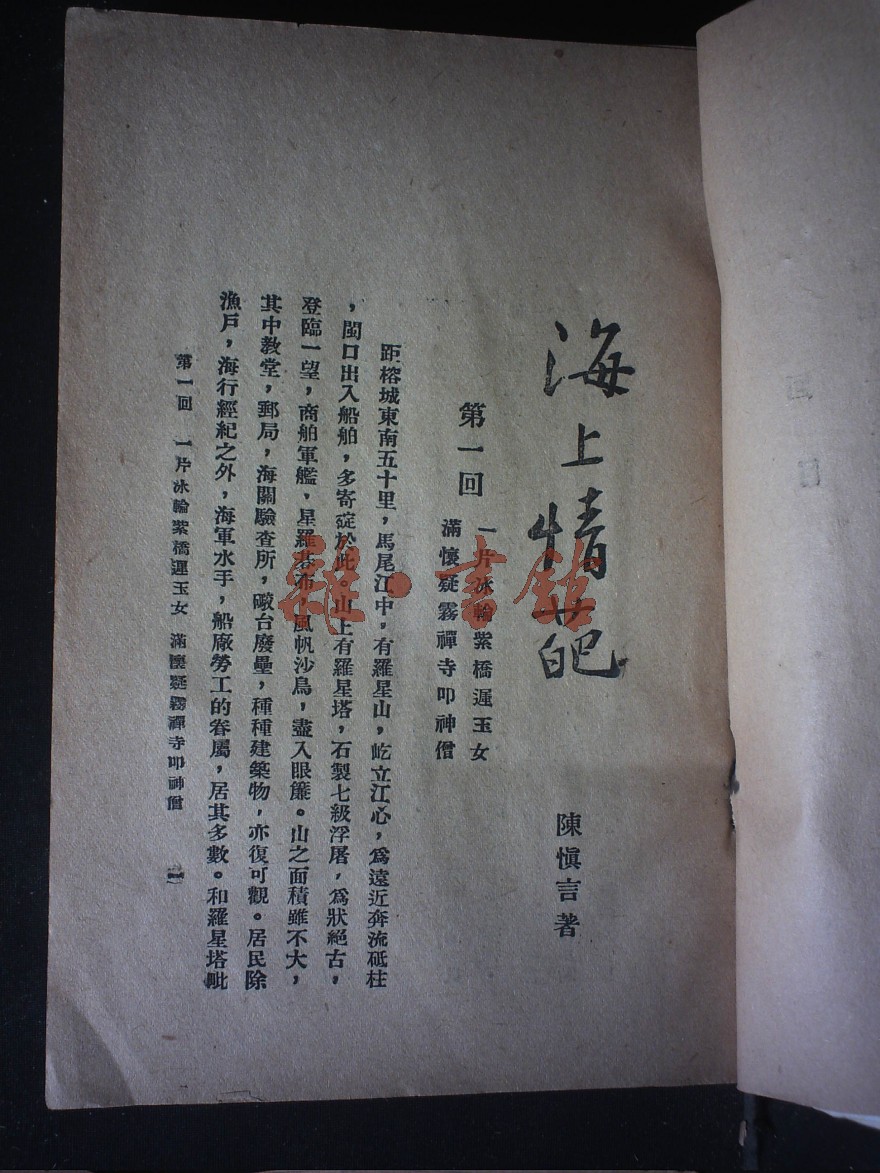 海上情葩
陳愼言著
第一回
一片冰輪紫橋遲玉女
滿懷疑霧禪寺叩神僧
距榕城東南五十里，馬尾江中，有羅星山，屹立江心，爲遠近奔流砥柱
，閩口出入船舶，多寄碇於此。山上有羅星塔，石製七級浮屠，爲狀絕古，
登臨一望，商舶軍艦，星羅棊布，風帆沙鳥，盡入眼簾。山之面積雖不大，
其中教堂，郵局，海關驗查所，礮台廢壘，種種建築物，亦復可觀。居民除
漁戶，海行經紀之外，海軍水手，船廠勞工的眷屬，居其多數。和羅星塔毗
第一回 一片冰輪紫橋遲玉女 滿懷疑霧禪寺叩神僧 一
雜·書館